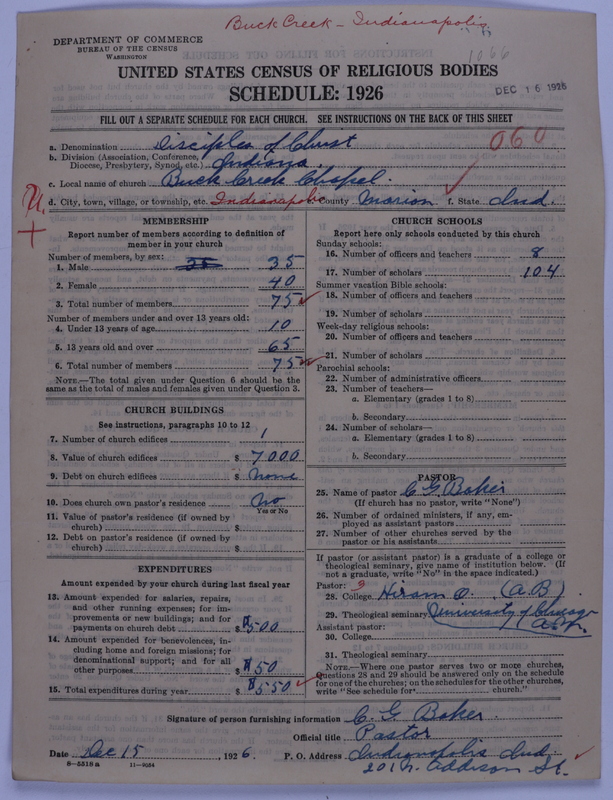 Buck Creek - Indianapolis
1066
DEPARTMENT OF COMMERCE
BUREAU OF THE CENSUS
WASHINGTON
UNITED STATES CENSUS OF RELIGIOUS BODIES
DEC 16 1926
SCHEDULE: 1926
FILL OUT A SEPARATE SCHEDULE FOR EACH CHURCH. SEE INSTRUCTIONS ON THE BACK OF THIS SHEET
060
a. Denomination Disciples of Christ
b. Division (Association, Conference, Diocese, Presbytery, Synod, etc.) Indiana
c. Local name of church Buck Creek Chapel
d. City, town, village, or township, etc. Indianapolis County Marion f. State Ind.
MEMBERSHIP
Report number of members according to definition of
member in your church
Number of members, by sex:
1. Male 35
2. Female 40
3. Total number of members 75
Number of members under and over 13 years old:
4. Under 13 years of age 10
5. 13 years old and over 65
6. Total number of members 75
NOTE.—The total given under Question 6 should be
same as the total of males and females given under Question 3.
CHURCH BUILDINGS
See instructions, paragraphs 10 to 12
7. Number of church edifices 1
8. Value of church edifices $ 7000
9. Debt on church edifices $ None
10. Does church own pastor's residence No
Yes or No
11. Value of pastor's residence (if owned by
church) $
12. Debt on pastor's residence (if owned by
church) $
EXPENDITURES
Amount expended by your church during last fiscal year
13. Amount expended for salaries, repairs,
and other running expenses; for im-
provements or new buildings; and for
payments on church debt $500
14. Amount expended for benevolences, in-
cluding home and foreign missions; for
denominational support; and for all
other purposes $50
15. Total expenditures during year $550
CHURCH SCHOOLS
Report here only schools conducted by this church
Sunday schools:
16. Number of officers and teachers 8
17. Number of scholars 104
Summer vacation Bible schools:
18. Number of officers and teachers
19. Number of scholars
Week-day religious schools:
20. Number of officers and teachers
21. Number of scholars
Parochial schools:
22. Number of administrative officers
23. Number of teachers—
a. Elementary (grades 1 to 8)
b. Secondary
24. Number of scholars—
a. Elementary (grades 1 to 8)
b. Secondary
PASTOR
25. Name of pastor C G Baker
(If church has no pastor, write "None")
26. Number of ordained ministers, if any, em-
ployed as assistant pastors
27. Number of other churches served by the
pastor or his assistants
If pastor (or assistant pastor) is a graduate of a college or
theological seminary, give name of institution below. (If
not a graduate, write "No" in the space indicated.)
Pastor: 3
28. College Hiram O. (A.B)
29. Theological seminary University of Chicago
Assistant pastor:
30. College
31. Theological seminary
NOTE.—Where one pastor serves two or more churches,
Questions 28 and 29 should be answered only on the schedule
for one of the churches; on the schedules for the other churches,
write "See schedule for church."
Signature of person furnishing information C. G Baker
Official title Pastor
Date Dec 15, 1926 P. O. Address Indianapolis Ind.
201 N. Addison St.
8—5518 a 11—9554